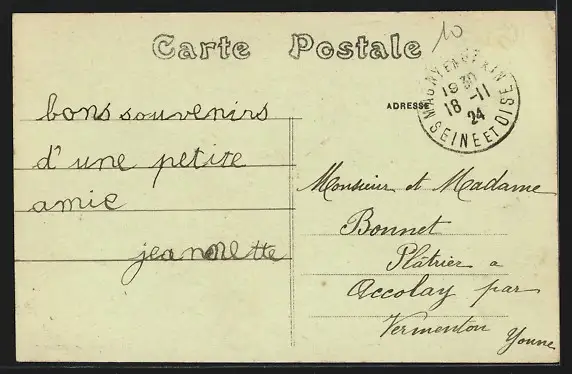 Carte Postale
10
MAGNY EN VEXIN
19 30
18 -11
24
SEINE ET OISE
ADRESSE
bons souvenirs
d'une petite
amie
jeannette
Monsieur et Madame
Bonnet
Plâtrier a
Accolay par
Vermenton Yonne